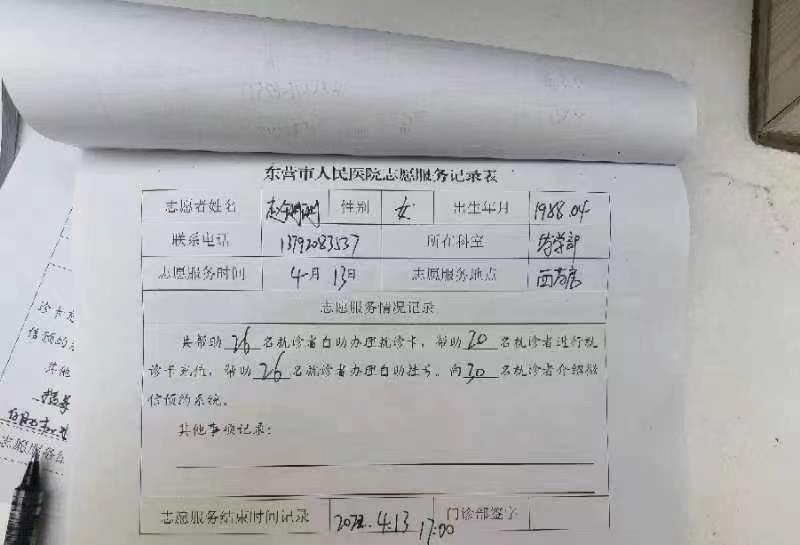 东营市人民医院志愿服务记录表
志愿者姓名 性别 女 出生年月 1988.04
联系电话 13792083537 所在科室
志愿服务时间 4月13日 志愿服务地点
志愿服务情况记录
共帮助26名就诊者自助办理就诊卡，帮助20名就诊者进行就
诊卡充值，帮助26名就诊者办理自助挂号。向30名就诊者介绍微
信预约系统。
其他事项记录：
志愿服务结束时间记录 2022.4.13 17:00 门诊部签字
诊卡充
信预约
其他